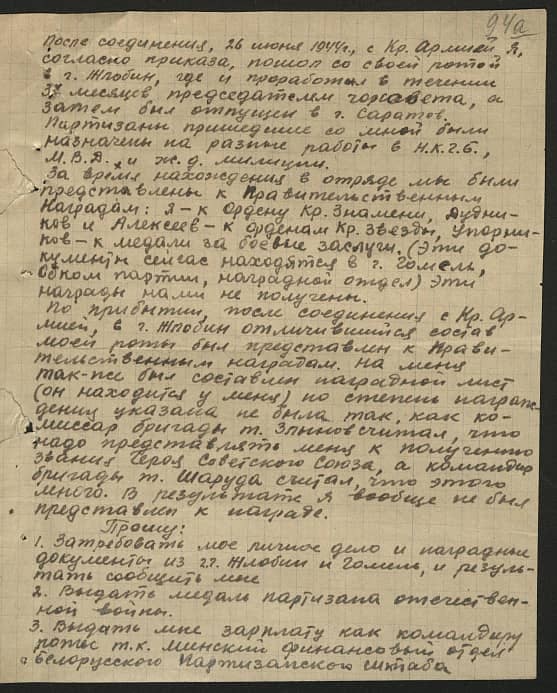 94а
После соединения, 26 июня 1944г., с Кр. Армией я,
согласно приказа, пошол со своей ротой
в г. Жлобин, где и проработал в течении
3х месяцев председателем горсовета, а
затем был отпущен в г. Саратов.
Партизаны пришедшие со мной были
назначены на разные работы в Н.К.Г.Б.,
М.В.Д. и ж.д. милиции.
За время нахождения в отряде мы были
представлены к Правительственным
Наградам: я – к Ордену Кр. Знамени, Дудни-
ков и Алексеев – к орденам Кр. Звезды, Упорни-
ков – к медали за боевые заслуги. (Эти до-
кументы сейчас находятся в г. Гомель,
Обком партии, наградной отдел) Эти
награды нами не получены.
По прибытии, после соединения с Кр. Ар-
мией, в г. Жлобин отличившийся состав
моей роты был представлен к Прави-
тельственным наградам. На меня
так-же был составлен наградной лист
(он находится у меня) но степень награж-
дения указана не была так, как ко-
миссар бригады т. считал, что
надо представлять меня к получению
звания Героя Советского Союза, а командир
бригады т. Шаруда считал, что этого
много. В результате я вообще не был
представлен к награде.
Прошу:
1. Затребовать мое личное дело и наградные
документы из г.г. Жлобин и Гомель, и резуль-
тать сообщить мне
2. Выдать медаль партизана отечествен-
ной войны.
3. Выдать мне зарплату как командиру
роты т.к. Минский финансовый отдел
Белорусского Партизанского штаба